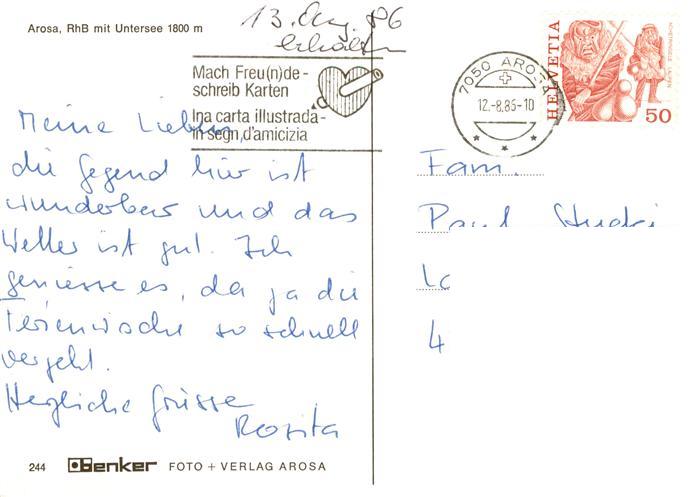 Arosa, RhB mit Untersee 1800 m
13. Aug. 86
erhalten
Mach Freu(n)de -
schreib Karten
Ina carta illustrada -
in segn d'amicizia
7050 AROSA
12.-8.86-10
HELVETIA
50
Meine Lieben,
die Gegend hier ist
wunderbar und das
Wetter ist gut. Ich
geniesse es, da ja die
Ferienwoche so schnell
vergeht.
Herzliche Grüsse
Rosita
Fam.
Paul Studi
Lc
4
244 Benker FOTO + VERLAG AROSA